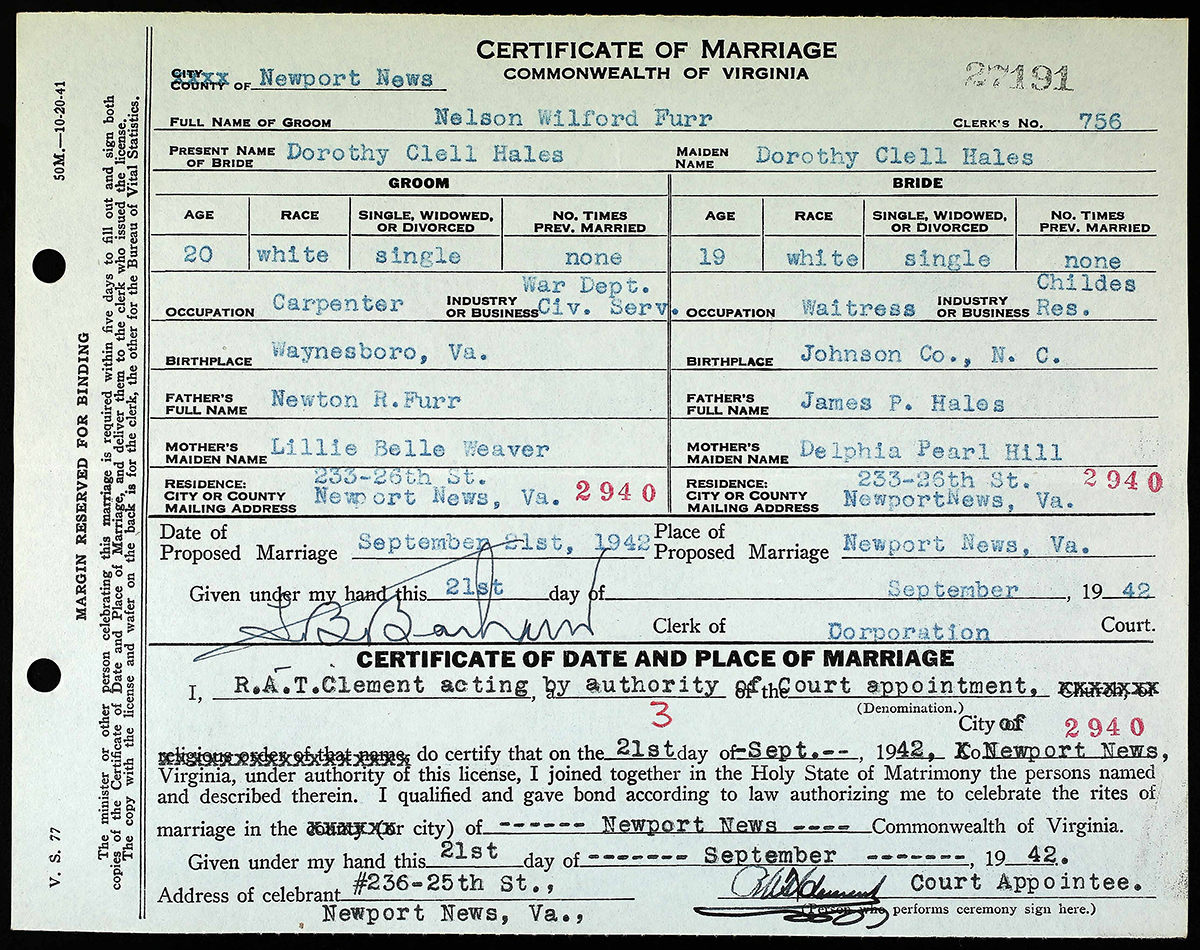 CERTIFICATE OF MARRIAGE
COMMONWEALTH OF VIRGINIA
27191
CITY
COUNTY OF Newport News
FULL NAME OF GROOM Nelson Wilford Furr CLERK'S NO. 756
PRESENT NAME OF BRIDE Dorothy Clell Hales MAIDEN NAME Dorothy Clell Hales
GROOM BRIDE
AGE RACE SINGLE, WIDOWED, OR DIVORCED NO. TIMES PREV. MARRIED AGE RACE SINGLE, WIDOWED, OR DIVORCED NO. TIMES PREV. MARRIED
20 white single none 19 white single none
OCCUPATION Carpenter INDUSTRY OR BUSINESS War Dept. Civ. Serv. OCCUPATION Waitress INDUSTRY OR BUSINESS Childes Res.
BIRTHPLACE Waynesboro, Va. BIRTHPLACE Johnson Co., N. C.
FATHER'S FULL NAME Newton R.Furr FATHER'S FULL NAME James P. Hales
MOTHER'S MAIDEN NAME Lillie Belle Weaver MOTHER'S MAIDEN NAME Delphia Pearl Hill
RESIDENCE: 233-26th St. RESIDENCE: 233-26th St.
CITY OR COUNTY Newport News, Va. 2940 CITY OR COUNTY NewportNews, Va. 2940
MAILING ADDRESS MAILING ADDRESS
Date of Proposed Marriage September 21st, 1942 Place of Proposed Marriage Newport News, Va.
Given under my hand this 21st day of September, 19 42
Clerk of Corporation Court.
CERTIFICATE OF DATE AND PLACE OF MARRIAGE
I, R.A.T.Clement acting, by authority of the Court appointment, xxxxxxx
(Denomination.)
3 City of 2940
religious order of that name, do certify that on the 21st day of -Sept.--, 1942, Newport News,
Virginia, under authority of this license, I joined together in the Holy State of Matrimony the persons named
and described therein. I qualified and gave bond according to law authorizing me to celebrate the rites of
marriage in the county (or city) of ------ Newport News ---- Commonwealth of Virginia.
Given under my hand this 21st day of ------- September -------, 19 42.
Address of celebrant #236-25th St., Court Appointee.
Newport News, Va., (Person who performs ceremony sign here.)
50M.—10-20-41
MARGIN RESERVED FOR BINDING
V. S. 77
The minister or other person celebrating this marriage is required within five days to fill out and sign both
copies of the Certificate of Date and Place of Marriage, and deliver them to the clerk who issued the license.
The copy with the license and wafer on the back is for the clerk, the other for the Bureau of Vital Statistics.